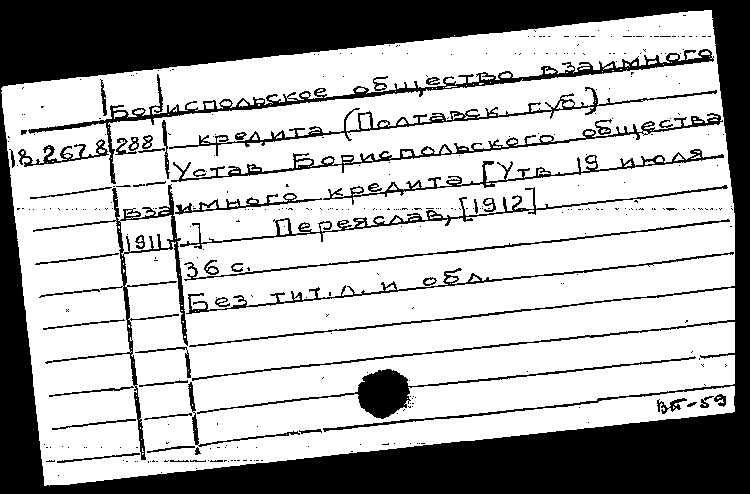 Бориспольское общество взаимного
18.267.8.288 кредита. (Полтавск. губ.).
Устав Бориспольского общества
взаимного кредита. [Утв. 19 июля
1911 г.]. Переяслав, [1912].
36 с.
Без тит.л. и обл.
ВП-59